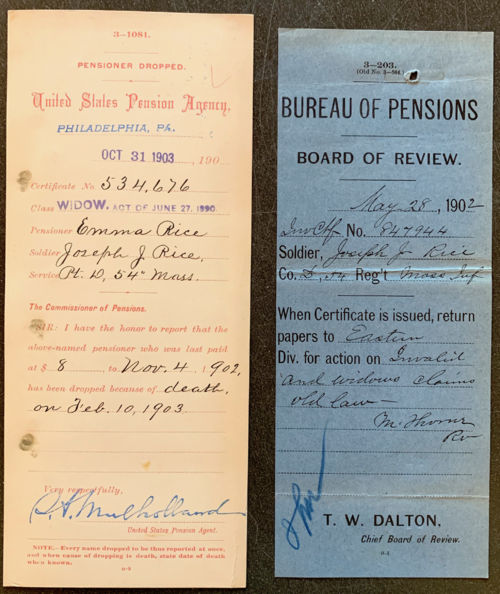 3—1081.
PENSIONER DROPPED.
United States Pension Agency,
PHILADELPHIA, PA.
OCT 31 1903, 190
Certificate No. 534,676
Class WIDOW. ACT OF JUNE 27, 1890.
Pensioner Emma Rice
Soldier Joseph J Rice,
Service Pt. D, 54" Mass.
The Commissioner of Pensions.
SIR: I have the honor to report that the
above-named pensioner who was last paid
at $ 8 to Nov. 4, 1902,
has been dropped because of death,
on Feb. 10, 1903.
Very respectfully,
St. Mulholland
United States Pension Agent.
NOTE.—Every name dropped to be thus reported at once,
and when cause of dropping is death, state date of death
when known.
6-2
3—203.
(Old No. 3—
BUREAU OF PENSIONS
BOARD OF REVIEW.
May 28, 1902
Inv Ctf No. 847944
Soldier, Joseph J. Rice
Co. D, 54 Reg't Mass Inf
When Certificate is issued, return
papers to Eastern
Div. for action on Invalid
and widows claims
old law—
Rv
T. W. DALTON,
Chief Board of Review.